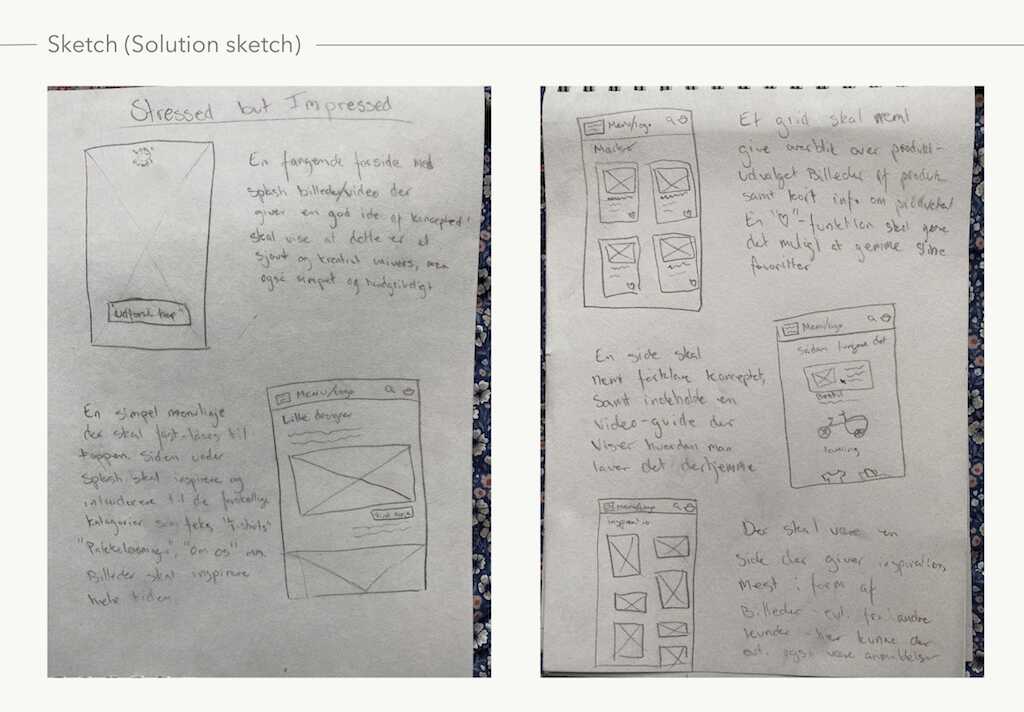 Sketch (Solution sketch)
Stressed but Impressed
Logo
"Udforsk her"
En fangende forside med
splash billede/video der
giver en god ide af konceptet!
skal vise at dette er et
sjovt og kreativt univers, men
også simpelt og håndgribeligt
En simpel menulinje
der skal fast-låses til
toppen. Siden under
Splash skal inspirere og
til de forskellige
kategorier som feks. "T-shirts"
"Pakkeløsning", "Om os" mm.
Billeder skal inspirere
hele tiden.
Menu/logo
Lille designer
Menu/logo
Mærker
Et grid skal nemt
give overblik over produkt-
udvalget Billeder af produkt
samt kort info om produktet
En "♡"-funktion skal gøre
det muligt at gemme sine
favoritter
En side skal
nemt forklare konceptet,
samt indeholde en
video-guide der
viser hvordan man
laver det derhjemme
Menu/logo
Sådan fungerer det
Bestil
levering
Menu/logo
Inspiration
Der skal være en
side der giver inspiration,
mest i form af
Billeder evt. fra andre
kunder - her kunne der
evt. også være anmeldelser